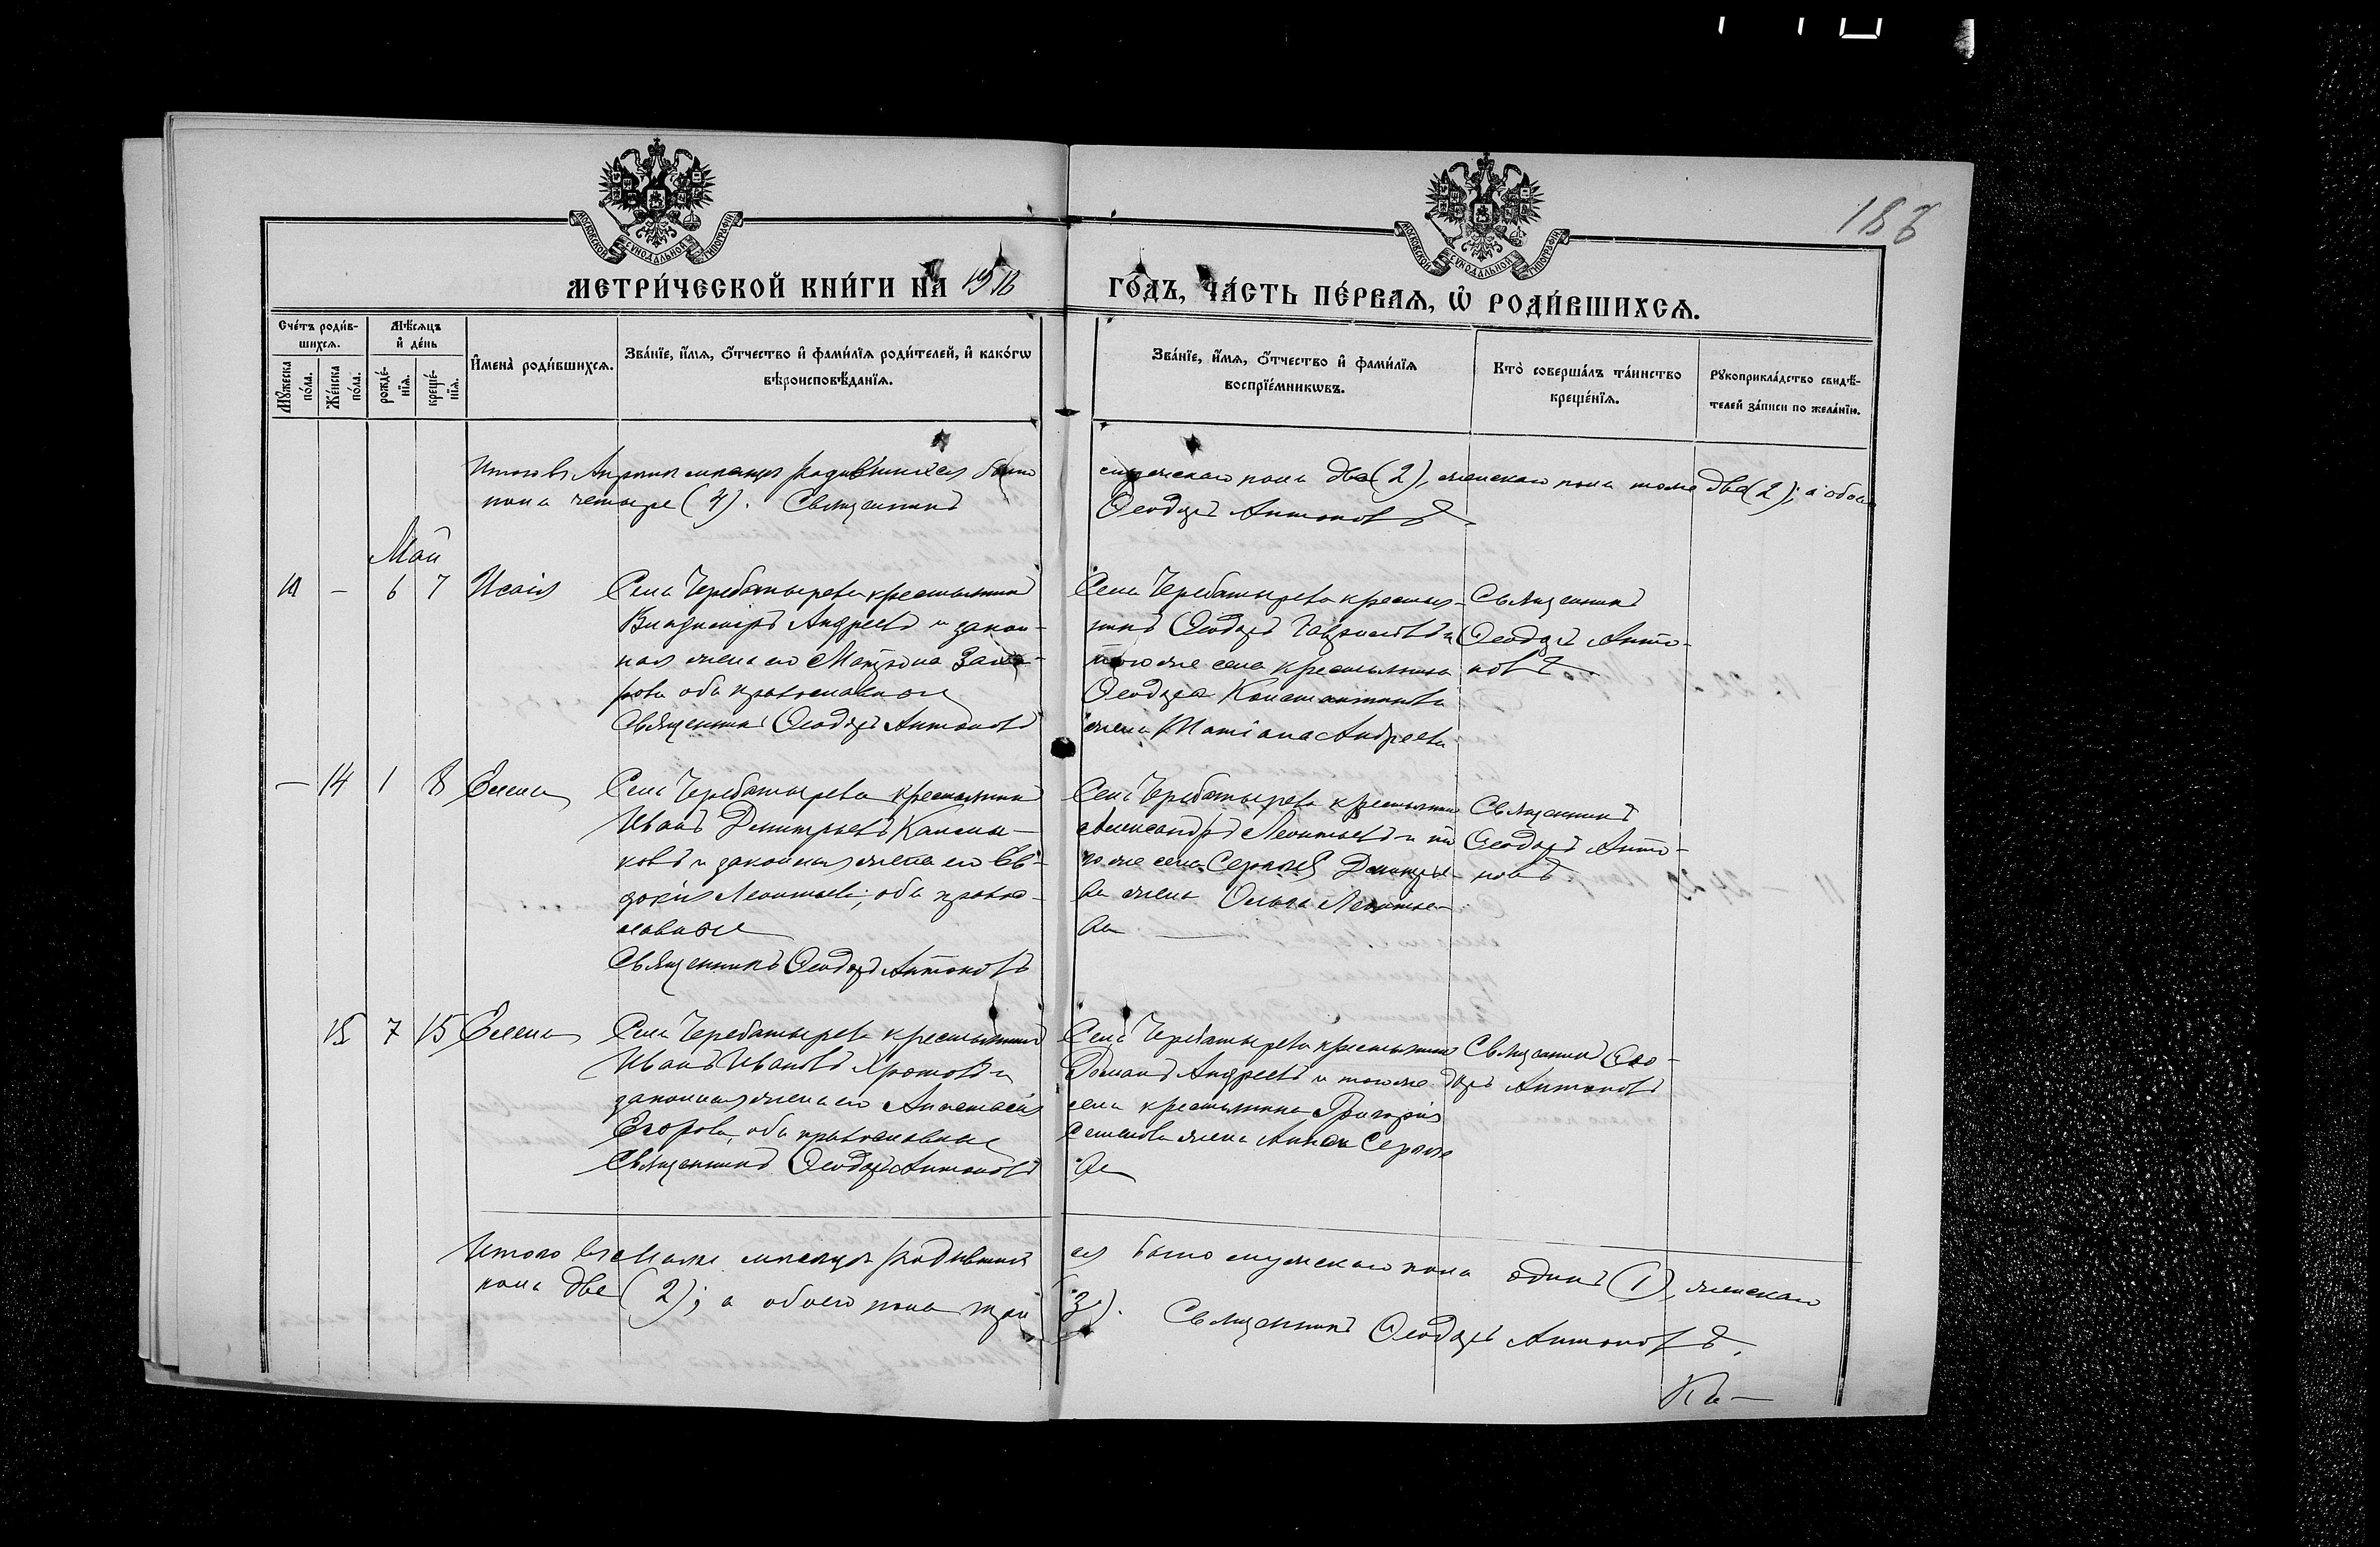 186
МОСКОВСКОЙ СѴНОДАЛЬНОЙ ТИПОГРАФІИ
МОСКОВСКОЙ СѴНОДАЛЬНОЙ ТИПОГРАФІИ
МЕТРИ́ЧЕСКОЙ КНИ́ГИ НА 1916 ГО́ДЪ, ЧА́СТЬ ПЕ́РВАѦ, Ѽ РОДИ́ВШИХСѦ.
Сче́тъ роди́в-
шихсѧ.
Мѣ́сѧцъ
и҆ де́нь
Мꙋ́жеска
по́ла.
Же́нска
по́ла.
рожде́-
нїѧ.
креще́-
нїѧ.
И҆мена̀ роди́вшихсѧ.
Зва́нїе, и҆́мѧ, ѻ҆́тчество и҆ фами́лїѧ роди́телей, и҆ како́гѡ
вѣроисповѣ́данїѧ.
Зва́нїе, и҆́мѧ, ѻ҆́тчество и҆ фами́лїѧ
воспрїе́мникѡвъ.
Кто̀ соверша́лъ та́инство
креще́нїѧ.
Рꙋкоприкла́дство свидѣ́-
телей за́писи по жела́нїю.
Итого въ Апрѣлѣ мѣсяцѣ родившихся было мужескаго пола два (2), женскаго пола тоже два (2); а обоего
пола четыре (4). Священникъ Ѳеодоръ Антоновъ
Май
— 6 7 Исаія
Села Черебатырева крестьянинъ
Владиміръ Андреевъ и закон-
ная жена его Матрона Заха-
рова оба православные
Священникъ Ѳеодоръ Антоновъ
Села Черебатырева крестья-
нинъ Ѳеодоръ Гавриловъ и
тогоже села крестьянина
Ѳеодора Константинова
жена Татіана Андреева
Священникъ
Ѳеодоръ Анто-
новъ
— 14 1 8 Елена
Села Черебатырева крестьянинъ
Иванъ Димитріевъ
ковъ и законная жена его Ев-
докія Леонтьева; оба право-
славные
Священникъ Ѳеодоръ Антоновъ
Села Черебатырева крестьянинъ
Александръ Леонтьевъ и то-
гоже села Сергѣя Димитріе-
ва жена Ольга Леонтье-
ва
Священникъ
Ѳеодоръ Анто-
новъ
15 7 15 Елена
Села Черебатырева крестьянинъ
Иванъ Ивановъ и
законная жена его Анастасія
Егорова, оба православные
Священникъ Ѳеодоръ Антоновъ
Села Черебатырева крестьянинъ
Романъ Андреевъ и тогоже
села крестьянина Григорія
Семенова жена Анна Сергѣе
ва
Священникъ Ѳео-
доръ Антоновъ
Итого въ Маѣ мѣсяцѣ родившихся было мужескаго пола одинъ (1), женскаго
пола две (2); а обоего пола три (3). Священникъ Ѳеодоръ Антоновъ.